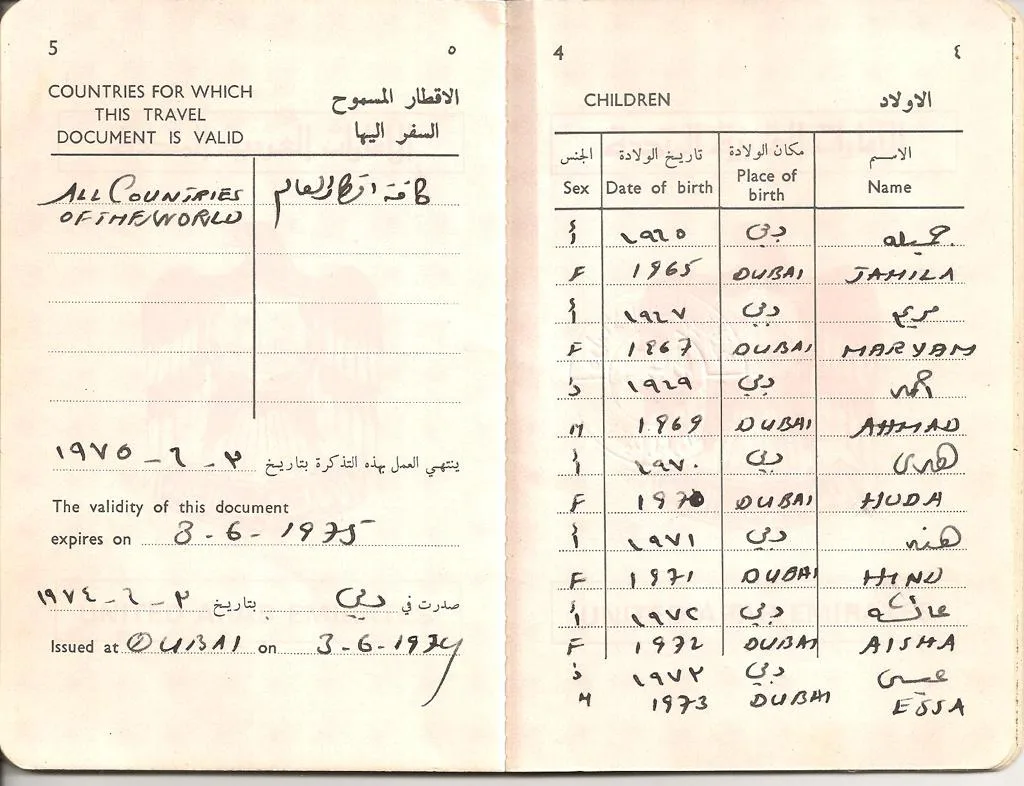 5 ٥
COUNTRIES FOR WHICH
THIS TRAVEL
DOCUMENT IS VALID
الاقطار المسموح
السفر اليها
ALL COUNTRIES
OF THE WORLD
كافة اقطار العالم
ينتهي العمل بهذه التذكرة بتاريخ ٣ - ٦ - ١٩٧٥
The validity of this document
expires on 3-6-1975
صدرت في دبي بتاريخ ٣ - ٦ - ١٩٧٤
Issued at DUBAI on 3-6-1974
4 ٤
CHILDREN الاولاد
الاسم مكان الولادة تاريخ الولادة الجنس
Sex Date of birth Place of birth Name
جميله دبي ١٩٦٥ أ
F 1965 DUBAI JAMILA
مريم دبي ١٩٦٧ أ
F 1967 DUBAI MARYAM
احمد دبي ١٩٦٩ ذ
M 1969 DUBAI AHMAD
هدى دبي ١٩٧٠ أ
F 1970 DUBAI HUDA
هند دبي ١٩٧١ أ
F 1971 DUBAI HIND
عائشه دبي ١٩٧٢ أ
F 1972 DUBAI AISHA
عيسى دبي ١٩٧٣ ذ
M 1973 DUBAI ESSA